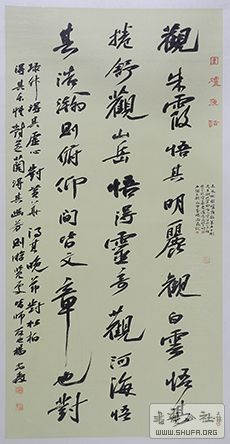 圍爐夜話
觀朱霞悟其明麗觀白雲悟其
捲舒觀山岳悟得靈奇觀河海悟
其浩瀚則俯仰間皆文章也對
綠竹得其虛心對黃華得其晚節對松柏
得其本性對芝蘭得其幽芳則游覽處皆師友也
WWW.SHUFA.ORG